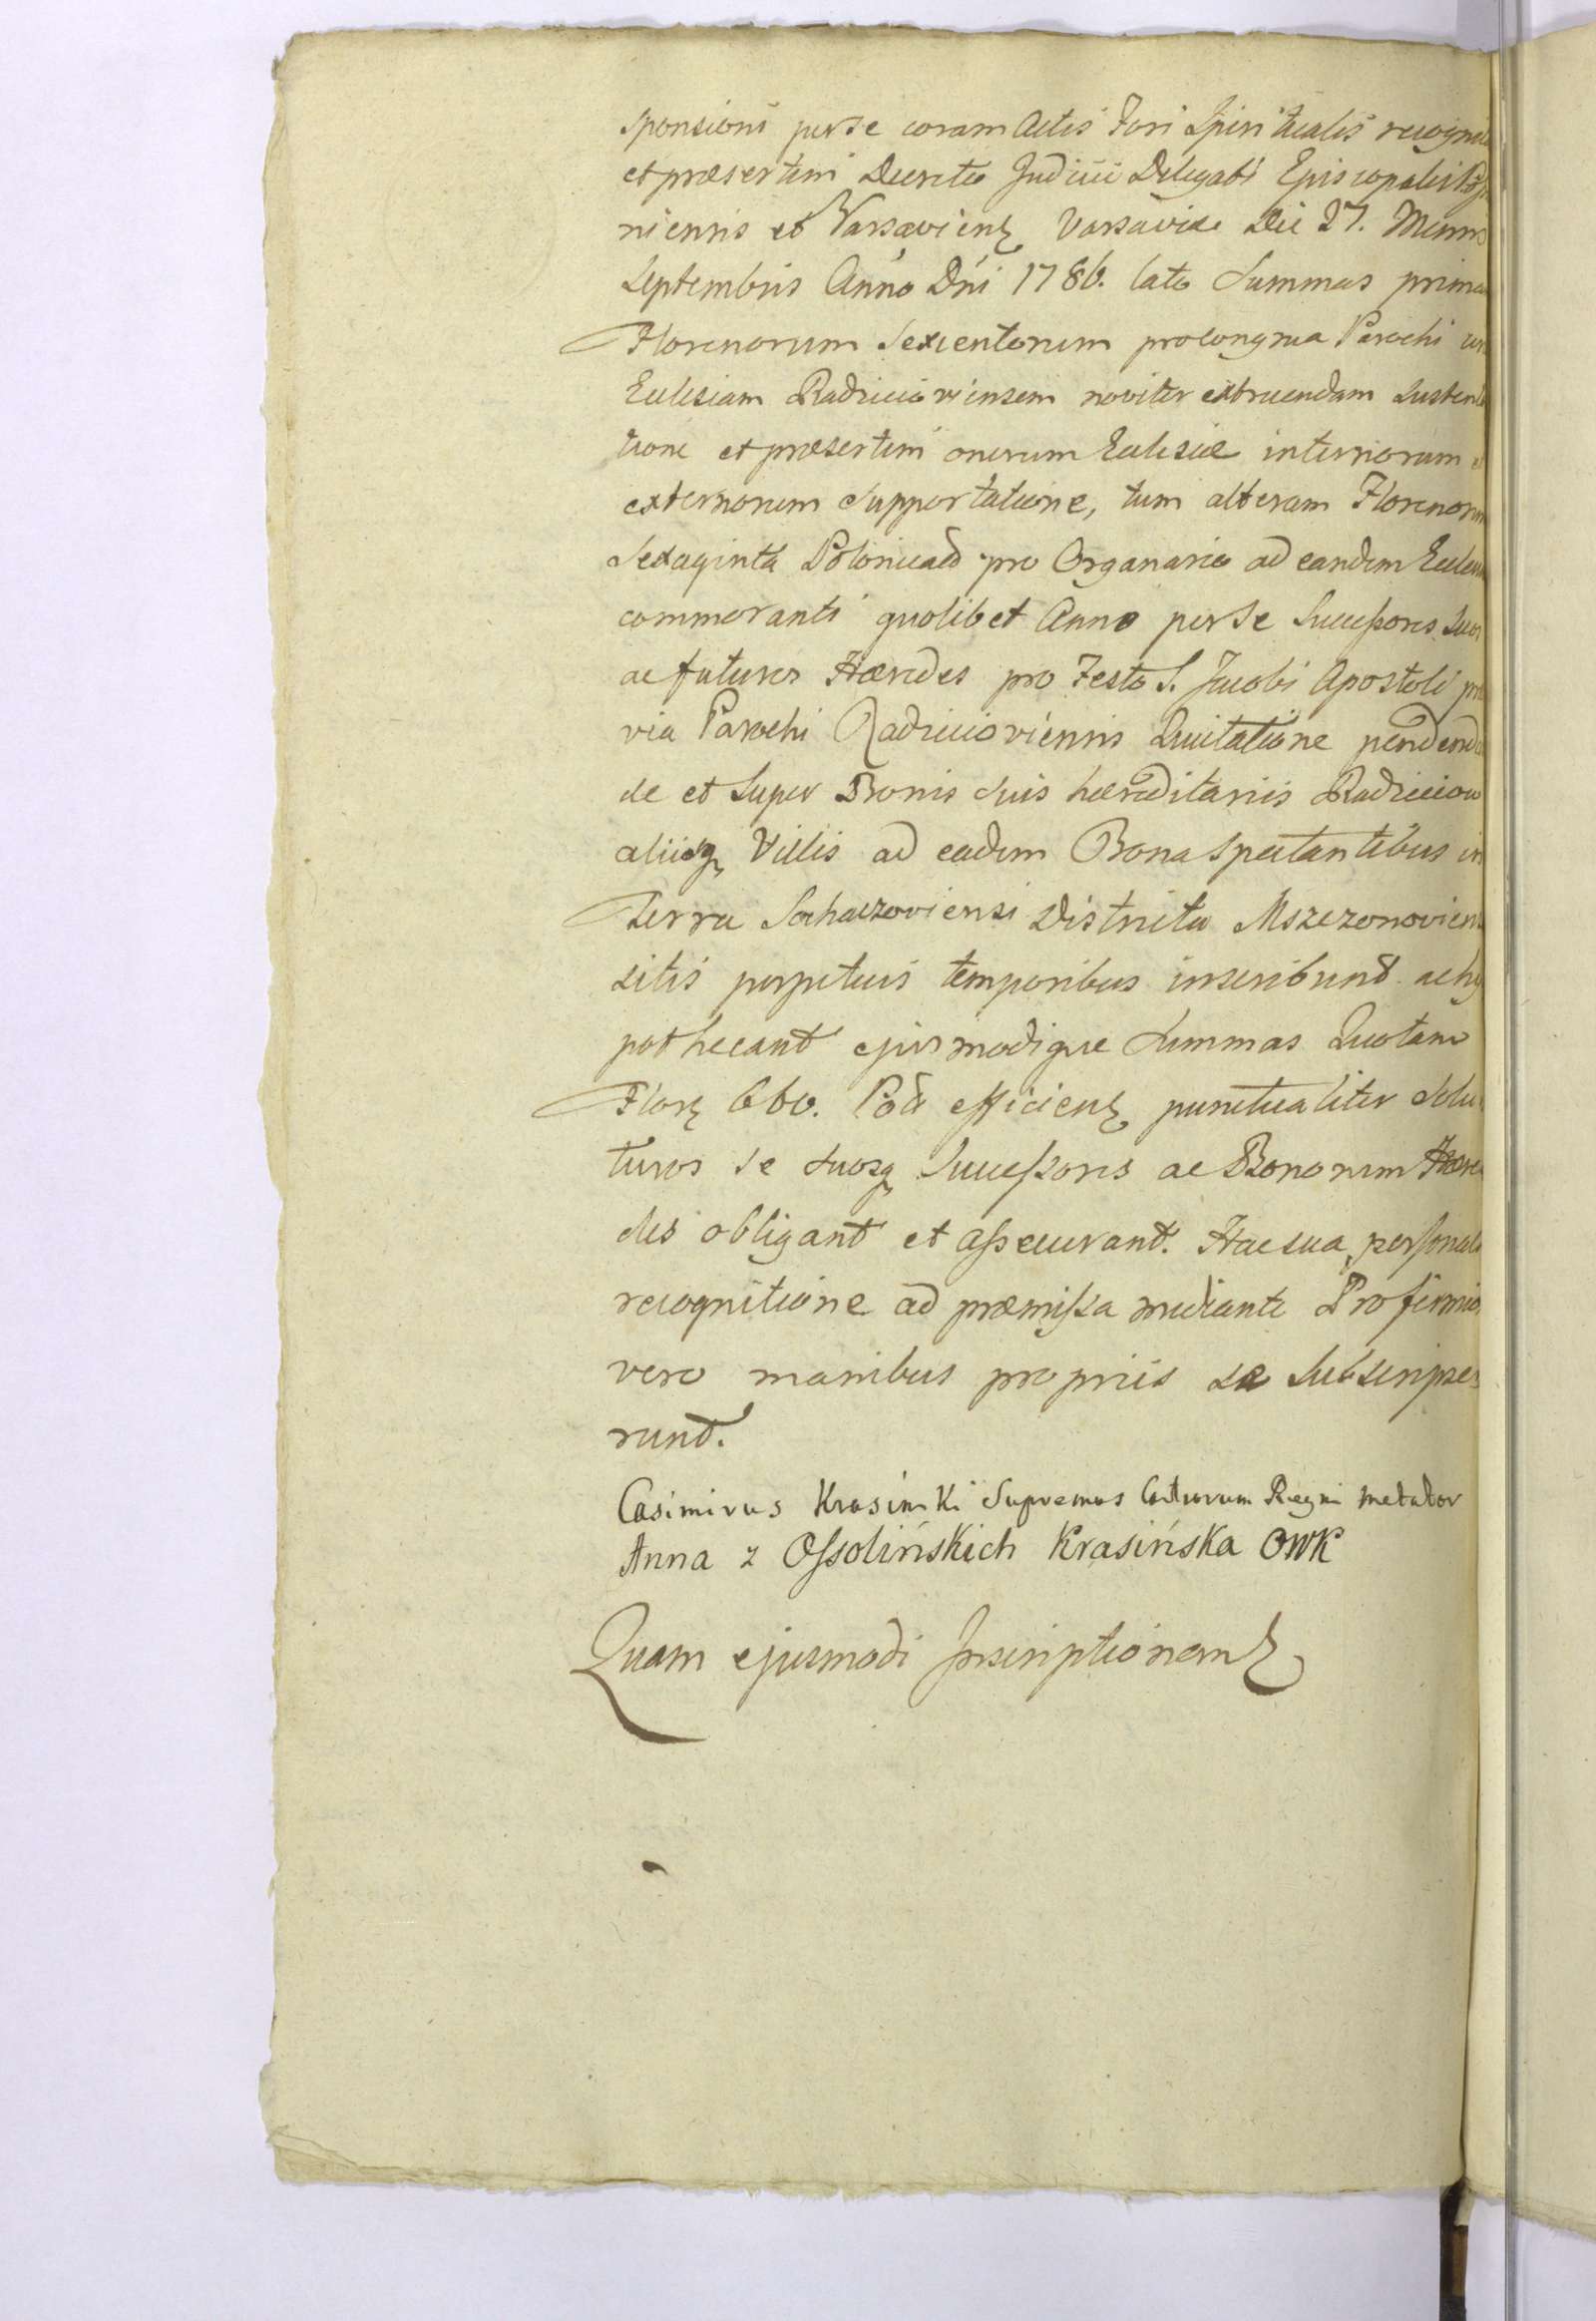 sponsioni per se coram Actis Fori Spiritualis recogni
et præsertim Decreto Judicii Delegati Episcopalis
niensis et Varsaviens Varsaviæ Die 27. Mensis
Septembris Anno Dni 1786. lato Summas primam
Florenorum Sexcentorum pro congrua Parochi
Ecclesiam Radzieioviensem noviter extruendam Sustenta
tione et præsertim onerum Ecclesiæ internorum et
externorum Supportatione, tum alteram Florenorum
Sexaginta Polonical pro Organario ad eandem Ecclesiam
commoranti quolibet Anno per Se Successores Suos
ac futuros Hæredes pro Festo S. Jacobi Apostoli præ
via Parochi Radzieioviensis Quitatione pendendas
de et Super Bonis Suis hæreditariis Radzieiow
aliisq Villis ad eadem Bona Spectantibus in
Terra Sochaczoviensi Districtu Mszczonoviens
sitis perpetuis temporibus inscribunt ac hy
pothecant ejusmodique Summas Quotam
Flor 660. Pol efficiens punctualiter Solu
turos Se Suosq Successores ac Bonorum Hære
des obligant et assecurant. Hac sua personali
recognitione ad præmissa mediante Pro firmio
vero manibus propriis se Subscripse
runt.
Casimirus Krasiński Supremus Castrorum Regni Metator
Anna z Ossolińskich Krasińska OWK
Quam ejusmodi Inscriptionem